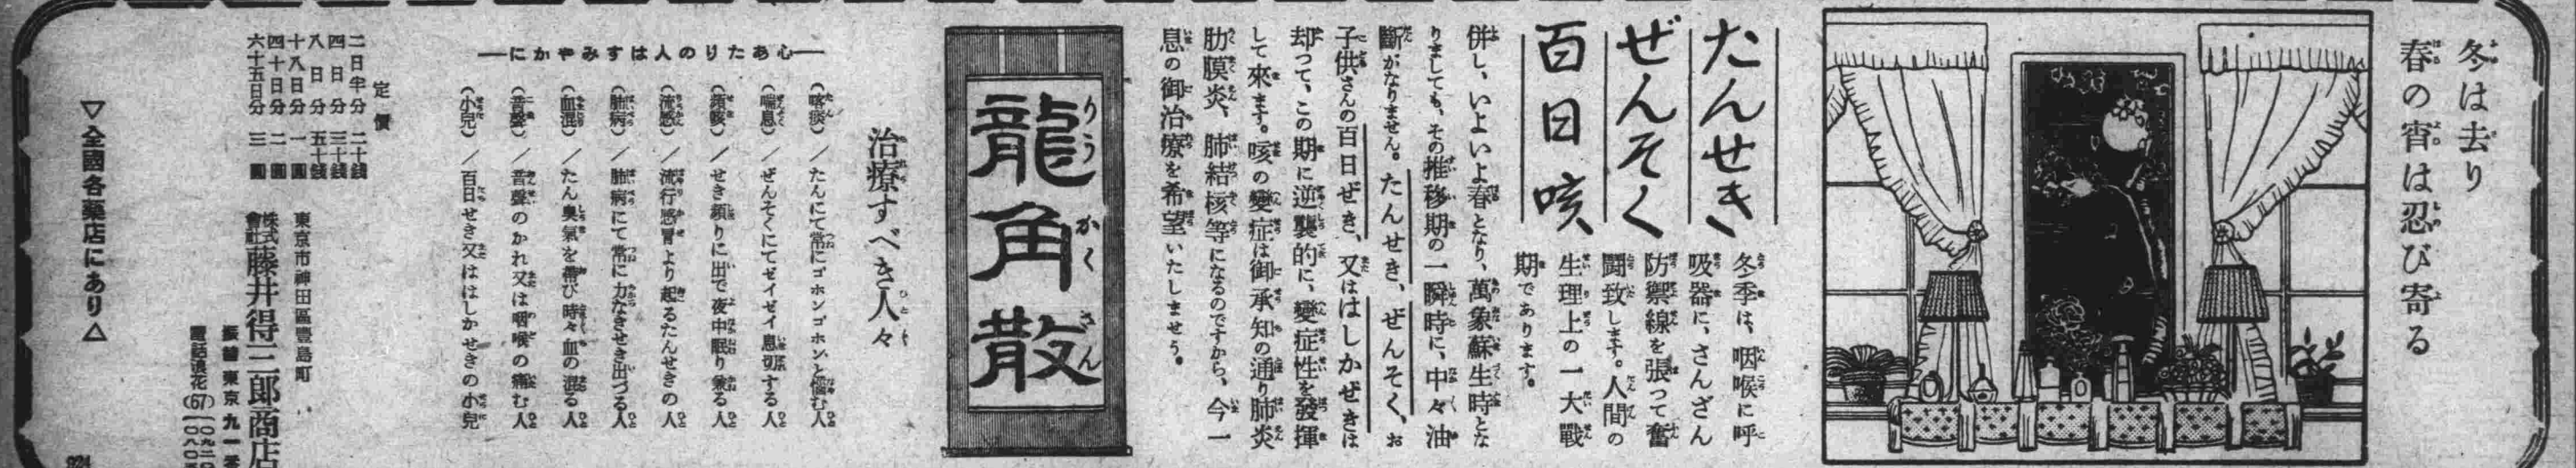 冬は去り
春の宵は忍び寄る
たんせき
ぜんそく
百日咳
冬季は、咽喉に呼
吸器に、さんざん
防禦線を張つて奮
鬪致します。人間の
生理上の一大戰
期であります。
併し、いよいよ春となり、萬象蘇生時とな
りましても、その推移期の一瞬時に、中々油
斷がなりません。たんせき、ぜんそく、お
子供さんの百日ぜき、又ははしかぜきは
却つて、この期に逆襲的に、變症性を發揮
して來ます。咳の變症は御承知の通り肺炎
肋膜炎、肺結核等になるのですから、今一
息の御治療を希望いたしませう。
龍角散
りうかくさん
治療すべき人々
―心あたりの人はすみやかに―
(喀痰)/たんにて常にゴホンゴホンと惱む人
(喘息)/ぜんそくにてゼイゼイ息切する人
(頻咳)/せき頻りに出で夜中眠り兼る人
(流感)/流行感冒より起るたんせきの人
(肺病)/肺病にて常に力なきせき出づる人
(血混)/たん臭氣を帶び時々血の混る人
(音聲)/音聲のかれ又は咽喉の痛む人
(小兒)/百日せき又ははしかせきの小兒
定價
二日半分 二十錢
四日分 三十錢
八日分 五十錢
十八日分 一圓
四十日分 二圓
六十五日分 三圓
東京市神田區豐島町
株式會社藤井得三郎商店
振替東京九一番
電話浪花(67)
▽全國各藥店にあり△
924